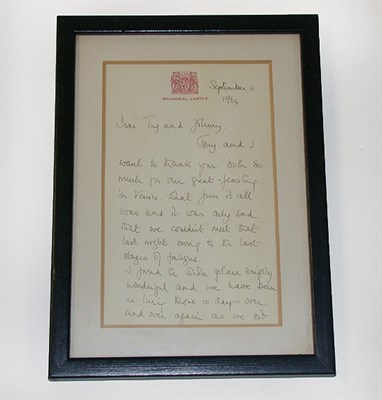 September 11
1964
BALMORAL CASTLE
Dear and Johnny,
Tony and I
want to thank you both so
much for our great feasting
in Venice. What fun it all
was and it was only sad
that we couldn't meet that
last night owing to the last
stages of fatigue.
I found the whole place simply
wonderful and we have been
re-living those 10 days over
and over again as we sit